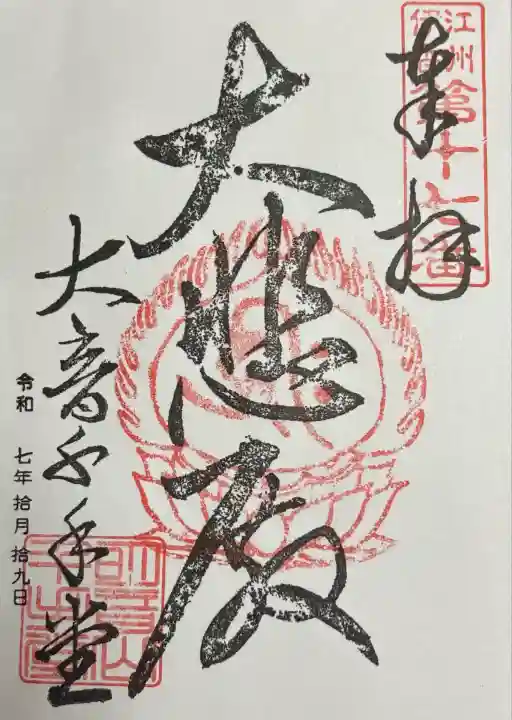 奉拝
江州
大悲殿
大音千手堂
令和 七年拾月拾九日